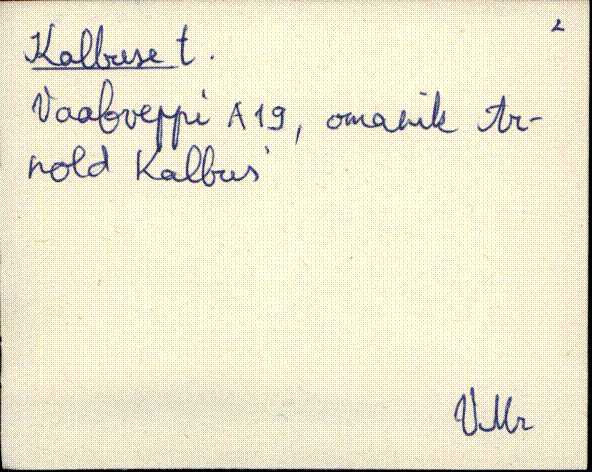 2
Kalbuse t.
Vaabveppi A 19, omanik Ar-
nold Kalbus
VMr